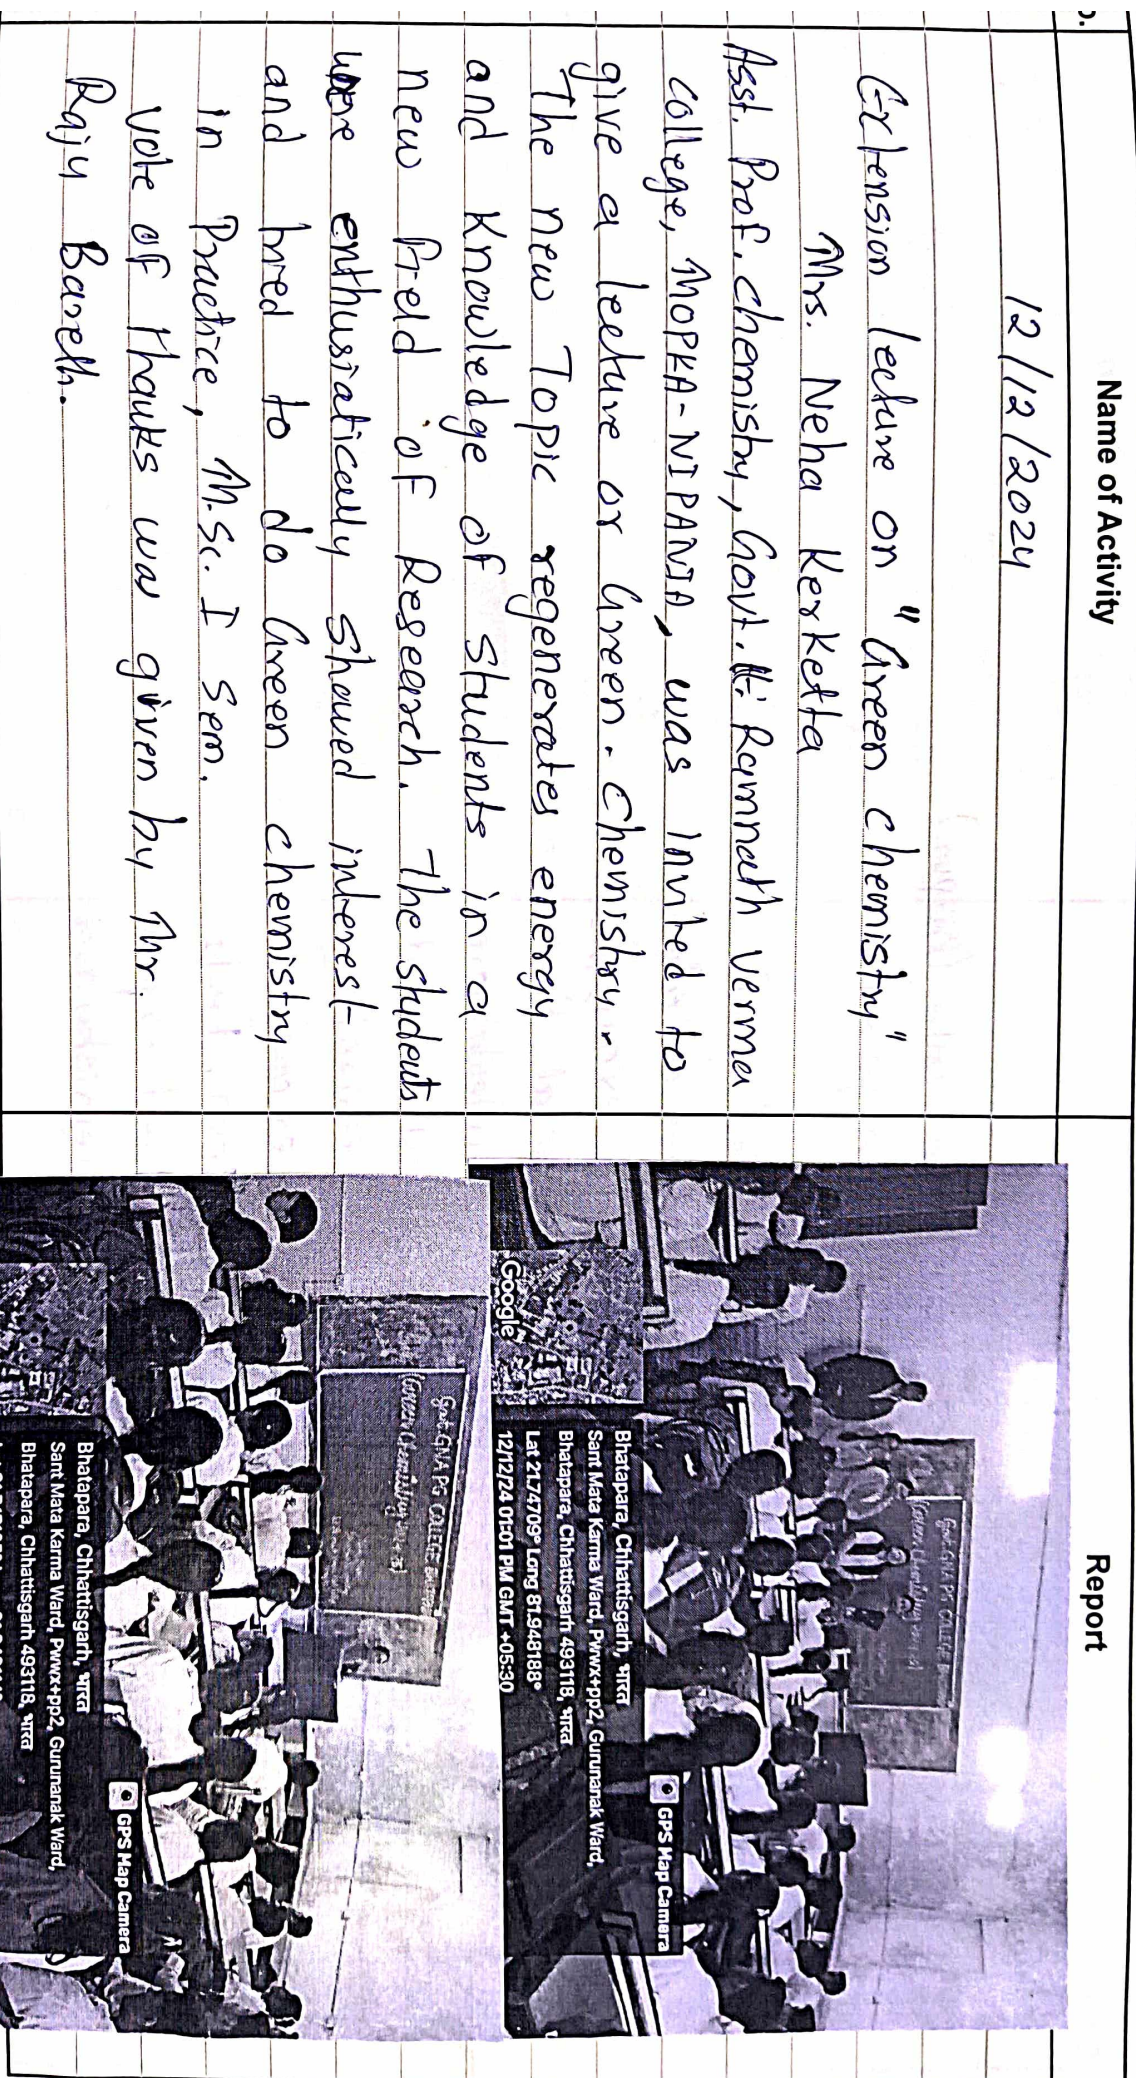 Name of Activity
Report
12/12/2024
Extension lecture on "Green chemistry"
Mrs. Neha Kerketta
Asst. Prof. Chemistry, Govt. Ramnath verma
college, MOPKA-NIPANIA, was invited to
give a lecture or Green. Chemistry.
The new Topic regenerates energy
and Knowledge of students in a
new field of Research. The students
were enthusiatically showed interest
and tried to do Green chemistry
in Practice, M.Sc. I Sem.
vote of thanks was given by Mr.
Raju Bareth.
Govt. GNA PG COLLEGE
Green Chemistry
GPS Map Camera
Google
Bhatapara, Chhattisgarh, भारत
Sant Mata Karma Ward, Pwwx+pp2, Gurunanak Ward,
Bhatapara, Chhattisgarh 493118, भारत
Lat 21.74709° Long 81.948188°
12/12/24 01:01 PM GMT +05:30
Govt. GNA PG COLLEGE
Green Chemistry
GPS Map Camera
Bhatapara, Chhattisgarh, भारत
Sant Mata Karma Ward, Pwwx+pp2, Gurunanak Ward,
Bhatapara, Chhattisgarh 493118, भारत